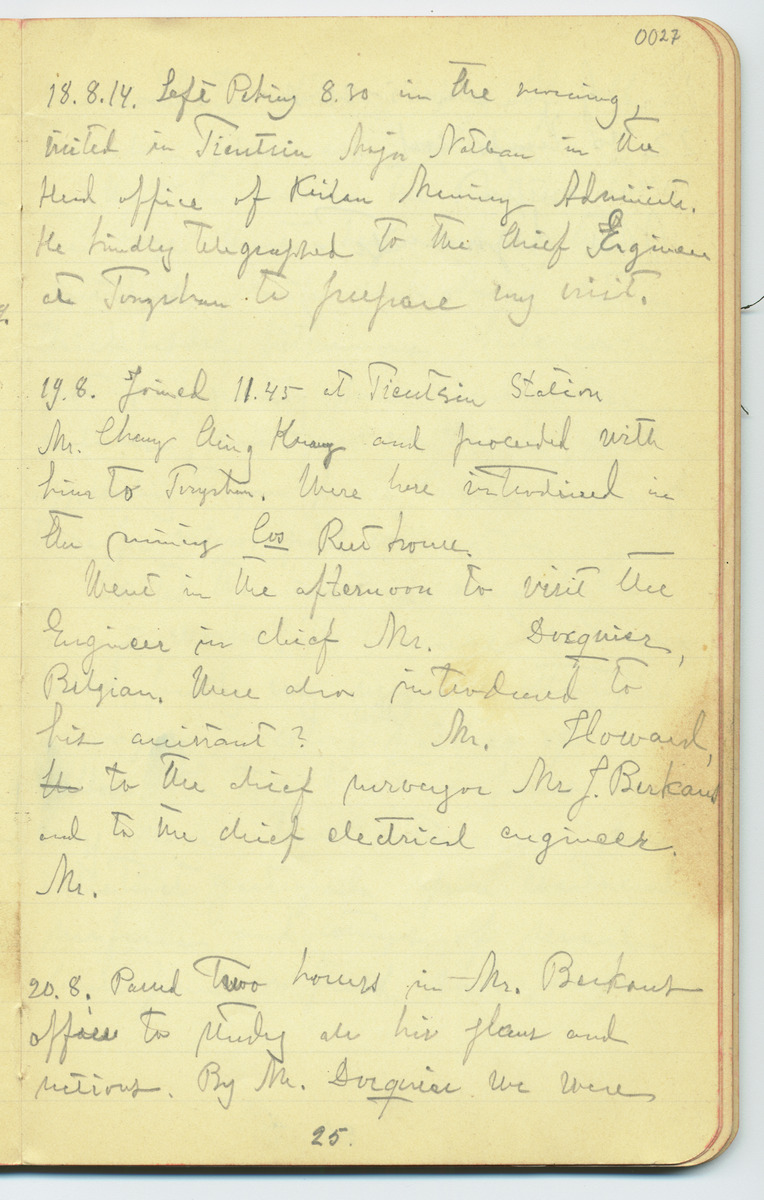 0027
18.8.14. Left Peking 8.30 in the morning,
visited in Tientsin Major Nathan in the
Head office of Kailan Mining Administr.
He kindly telegraphed to the Chief Engineer
at Tongshan to prepare my visit.
19.8. Joined 11.45 at Tientsin Station
Mr. Chang Ching Kuang and proceeded with
him to Tongshan. Were here introduced in
the mining Cos Rest house.
Went in the afternoon to visit the
Engineer in chief Mr. Docquier,
Belgian. Were also introduced to
his assistant? Mr. Howard,
to the chief surveyor Mr J. Berkant
and to the chief electrical engineer.
Mr.
20.8. Passed Two hours in Mr. Berkants
office to study all his plans and
sections. By Mr. Docquier we were
25.